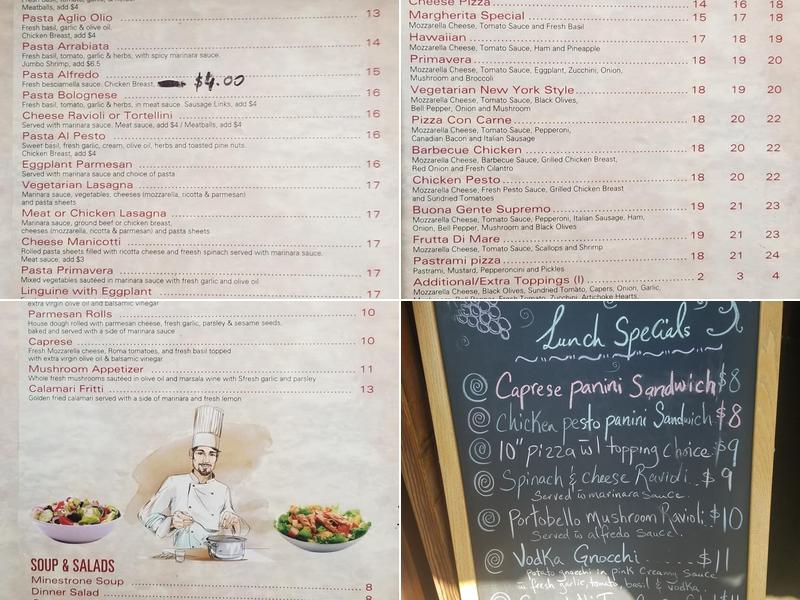 Meatballs, add $4
Pasta Aglio Olio 13
Fresh basil, garlic & olive oil.
Chicken Breast, add $4
Pasta Arrabiata 14
Fresh basil, tomato, garlic & herbs, with spicy marinara sauce.
Jumbo Shrimp, add $6.5
Pasta Alfredo 15
Fresh besciamella sauce. Chicken Breast, $4.00
Pasta Bolognese 16
Fresh basil, tomato, garlic & herbs, in meat sauce. Sausage Links, add $4
Cheese Ravioli or Tortellini 16
Served with marinara sauce. Meat sauce, add $4 / Meatballs, add $4
Pasta Al Pesto 16
Sweet basil, fresh garlic, cream, olive oil, herbs and toasted pine nuts.
Chicken Breast, add $4
Eggplant Parmesan 16
Served with marinara sauce and choice of pasta
Vegetarian Lasagna 17
Marinara sauce, vegetables, cheeses (mozzarella, ricotta & parmesan)
and pasta sheets
Meat or Chicken Lasagna 17
Marinara sauce, ground beef or chicken breast,
cheeses (mozzarella, ricotta & parmesan) and pasta sheets
Cheese Manicotti 17
Rolled pasta sheets filled with ricotta cheese and freesh spinach served with marinara sauce.
Meat sauce, add $3
Pasta Primavera 17
Mixed vegetables sautéed in marinara sauce with fresh garlic and olive oil
Linguine with Eggplant 17
Cheese Pizza 14 16 18
Margherita Special 15 17 18
Mozzarella Cheese, Tomato Sauce and Fresh Basil
Hawaiian 17 18 19
Mozzarella Cheese, Tomato Sauce, Ham and Pineapple
Primavera 18 19 20
Mozzarella Cheese, Tomato Sauce, Eggplant, Zucchini, Onion,
Mushroom and Broccoli
Vegetarian New York Style 18 19 20
Mozzarella Cheese, Tomato Sauce, Black Olives,
Bell Pepper, Onion and Mushroom
Pizza Con Carne 18 20 22
Mozzarella Cheese, Tomato Sauce, Pepperoni,
Canadian Bacon and Italian Sausage
Barbecue Chicken 18 20 22
Mozzarella Cheese, Barbecue Sauce, Grilled Chicken Breast,
Red Onion and Fresh Cilantro
Chicken Pesto 18 20 22
Mozzarella Cheese, Fresh Pesto Sauce, Grilled Chicken Breast
and Sundried Tomatoes
Buona Gente Supremo 19 21 23
Mozzarella Cheese, Tomato Sauce, Pepperoni, Italian Sausage, Ham,
Onion, Bell Pepper, Mushroom and Black Olives
Frutta Di Mare 19 21 23
Mozzarella Cheese, Tomato Sauce, Scallops and Shrimp
Pastrami pizza 18 21 24
Pastrami, Mustard, Pepperoncini and Pickles
Additional/Extra Toppings (I) 2 3 4
Mozzarella Cheese, Black Olives, Sundried Tomato, Capers, Onion, Garlic,
extra virgin olive oil & balsamic vinegar
Parmesan Rolls 10
House dough rolled with parmesan cheese, fresh garlic, parsley & sesame seeds,
baked and served with a side of marinara sauce
Caprese 10
Fresh Mozzarella cheese, Roma tomatoes, and fresh basil topped
with extra virgin olive oil & balsamic vinegar
Mushroom Appetizer 11
Whole fresh mushrooms sautéed in olive oil and marsala wine with Sfresh garlic and parsley
Calamari Fritti 13
Golden fried calamari served with a side of marinara and fresh lemon
SOUP & SALADS
Minestrone Soup 8
Dinner Salad 8
Lunch Specials
Caprese panini Sandwich $8
Chicken pesto panini Sandwich $8
10" pizza w/ 1 topping choice $9
Spinach & cheese Ravioli $9
Served w marinara sauce.
Portobello Mushroom Ravioli $10
Served w alfredo sauce.
Vodka Gnocchi $11
Potato gnocchi in pink Creamy Sauce
w fresh garlic, tomato, basil & vodka.